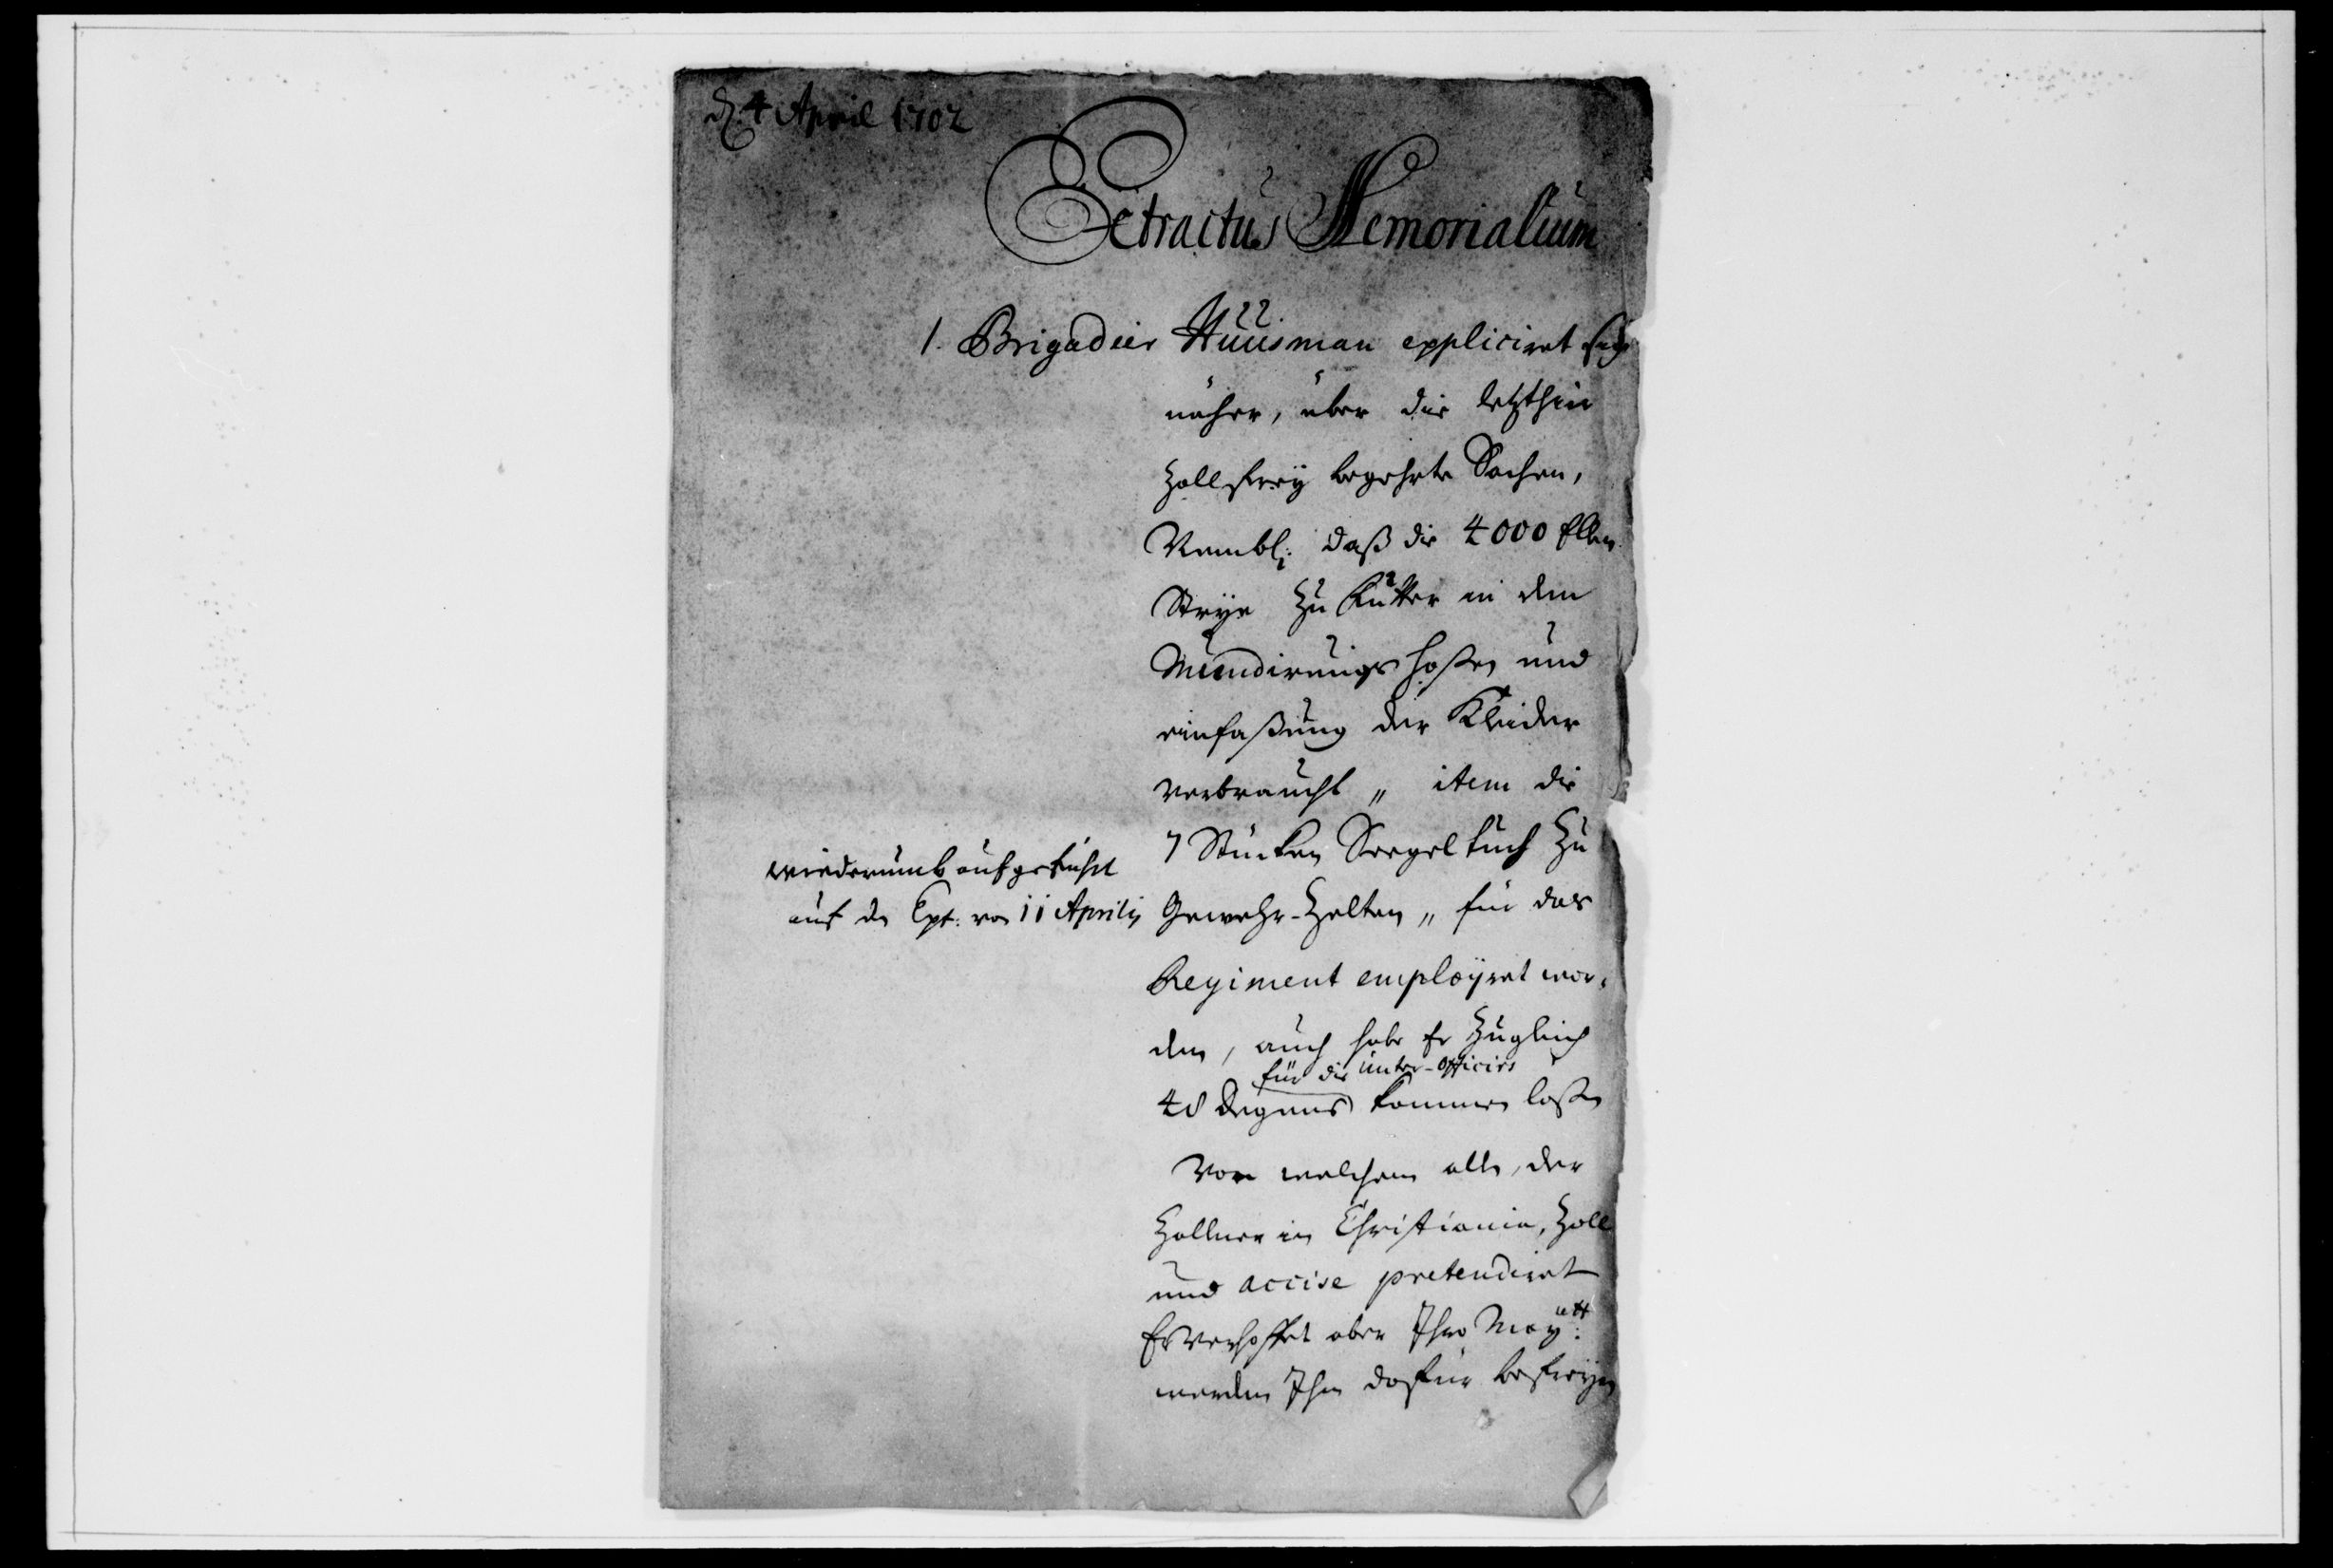 d. 4 April 1702
Extractus Memorialium
1. Brigadier Huusman expliciret sich
näher, über die letzthin
Zollfrey begehrte Sachen,
Nembl: daß die 4000 Ellen
Strye zu Futter in den
Mundirungs hoßen und
einfaßung der Kleider
verbraucht „ item die
7 Stücken Seegeltuch zu
Gewehr-Zelten „ für das
Regiment employret wor-
den, auch habe Er zugleich
für die unter-Officirs
48 Degens kommen laßen
Von welchem allen, der
Zöllner in Christiania, Zoll
und accise pretendiret
Er verhoffet aber Ihro Mayett:
werden Ihn dafür befreyen
wiederumb aufgeführt
auf den Ext: von 11 Aprilis